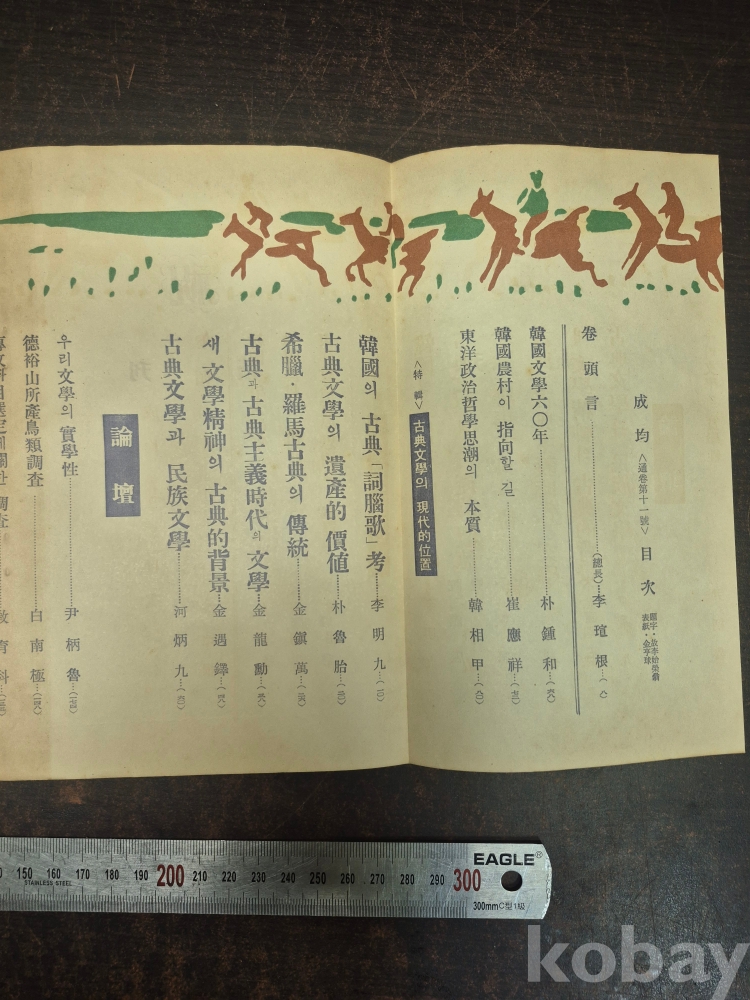 成均 〈通卷第十一號〉 目次
題字·故李始榮翁
表紙·金亨球
卷頭言……(總長)…李瑄根
韓國文學六〇年……朴鍾和
韓國農村이 指向할 길……崔應祥
東洋政治哲學思潮의 本質……韓相甲
〈特輯〉 古典文學의 現代的位置
韓國의 古典「詞腦歌」考…李明九
古典文學의 遺產的 價値…朴魯胎
希臘·羅馬古典의 傳統……金鎭萬
古典과 古典主義時代의 文學…金龍勳
새 文學精神의 古典的背景…金遇鐸
古典文學과 民族文學……河炳九
論壇
우리文學의 實學性……尹柄魯
德裕山所產鳥類調査……白南極
敎育科
150 160 170 180 190 200 210 220 230 240 250 260 270 280 290 300
STAINLESS STEEL
EAGLE®
300mm C型1級
kobay